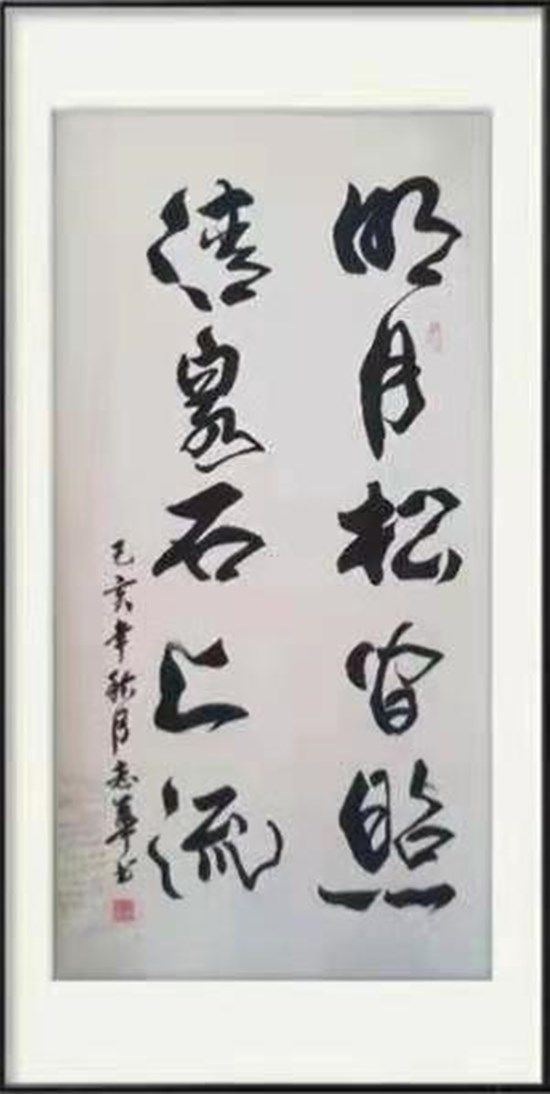 明月松间照
清泉石上流
己亥年秋月志华书